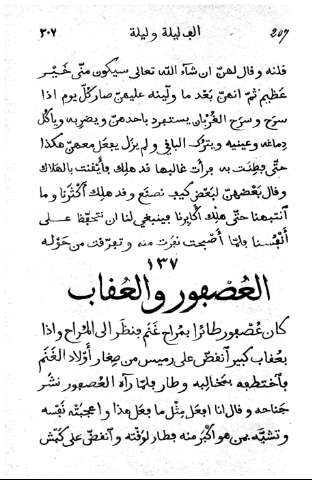 ٢٠٧ الف ليلة وليلة 207
قلنه وقال لهنّ ان شآء اللّه تعالى سيكون منّى خَيْر
عظيم ثمّ انهنّ بَعْد ما ولّينه عليهنّ صار كلّ يوم اذا
سرَح وسرَح الغُرْبان يستفرد باحدهنّ ويضربه وياكل
دماغه وعينيه ويترك الباقى ولم يزل يفعل معهنّ هكذا
حتّى فطنت به فرأت غالبها قد هلك فايْقنت بالهلاك
وقال بَعْضهنّ لبَعْض كيف نصنع وقد هلك أكْثرنا وما
آنتبهنا حتّى هلك أكابرنا فينبغى لنا ان نتحفّظ على
أنْفُسنا فلمّا أصْبحت نفرت منه وتفرّقت من حَوْله
١٣٧
العُصْفور والعُقاب
كان عُصْفور طائرا بمُراح غَنَم فنظر الى المُراح واذا
بعُقاب كبير آنقضّ على رميس من صِغار أوْلاد الغَنَم
فآختطفه بمخالبه وطار فلمّا رآه العصفور نشر
جناحه وقال انا افعل مِثْل ما فعل هذا واعجبتْه نَفْسه
وتشبّه بمن هو اكْبَر منه فطار لوَقْته وآنقضّ على كَبْش